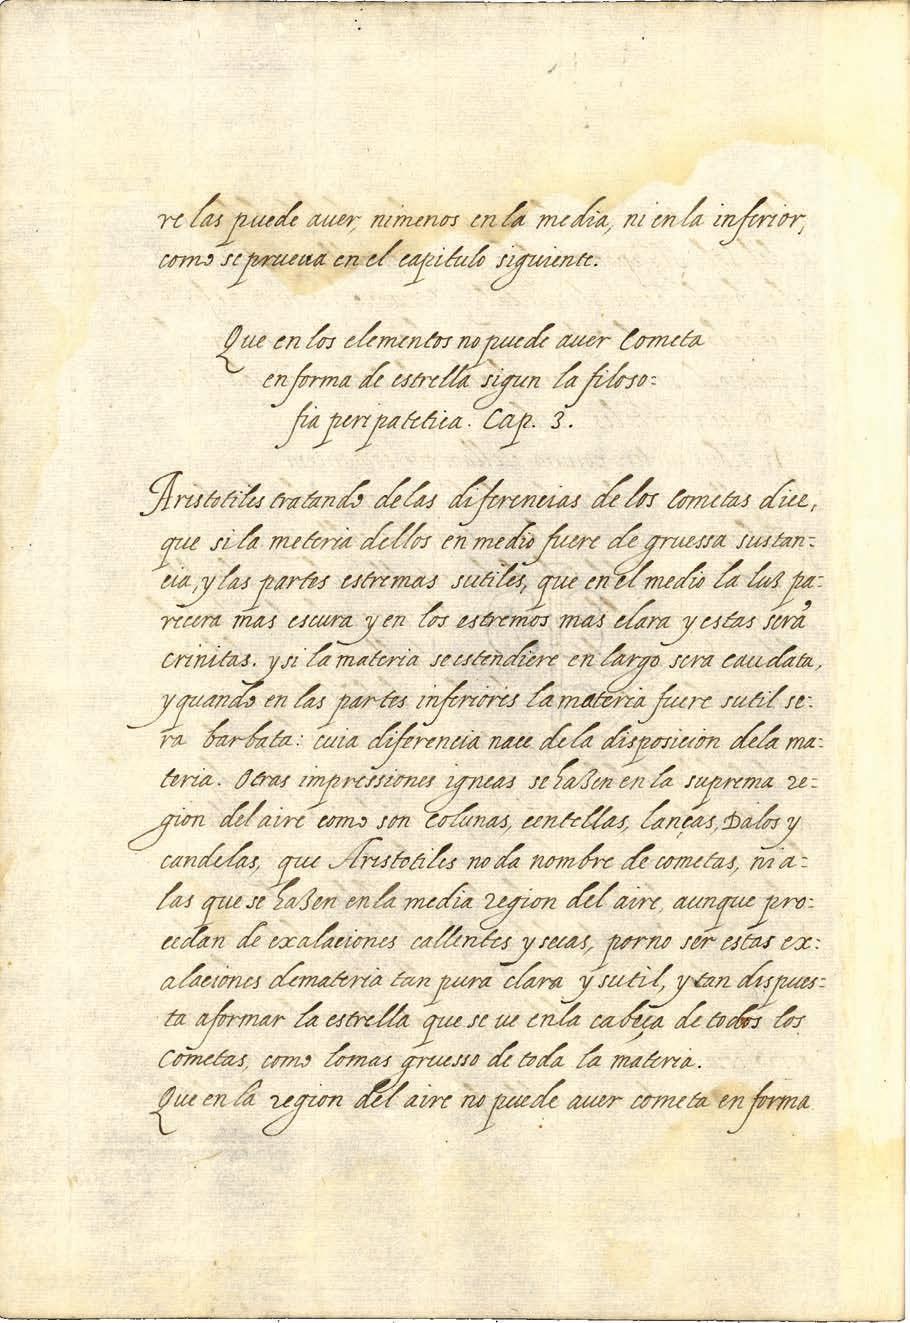 re las puede auer, nimenos en la media, ni en la inferior,
como se prueua en el capitulo siguiente.
Que en los elementos no puede auer Cometa
en forma de estrella sigun la filoso=
fia peripatetica. Cap. 3.
Aristotiles tratando de las diferencias de los Cometas dice,
que si la meteria dellos en medio fuere de gruessa sustan=
cia, y las partes estremas sutiles, que en el medio la luz pa=
recera mas escura y en los estremos mas clara y estas serã
crinitas. y si la materia se estendiere en largo sera caudata,
y quando en las partes inferiores la materia fuere sutil se=
ra barbata: cuia diferencia nace de la disposicion de la ma=
teria. Otras impressiones igneas se hazen en la suprema re=
gion del aire como son Colunas, centellas, lanças, Dalos y
candelas, que Aristotiles no da nombre de cometas, ni a=
las que se hazen en la media region del aire, aunque pro=
cedan de exalaciones callentes y secas, por no ser estas ex=
alaciones de materia tan pura clara y sutil, y tan dispues=
ta a formar la estrella que se ve en la cabeça de todos los
Cometas, como lo mas gruesso de toda la materia.
Que en la region del aire no puede auer cometa en forma